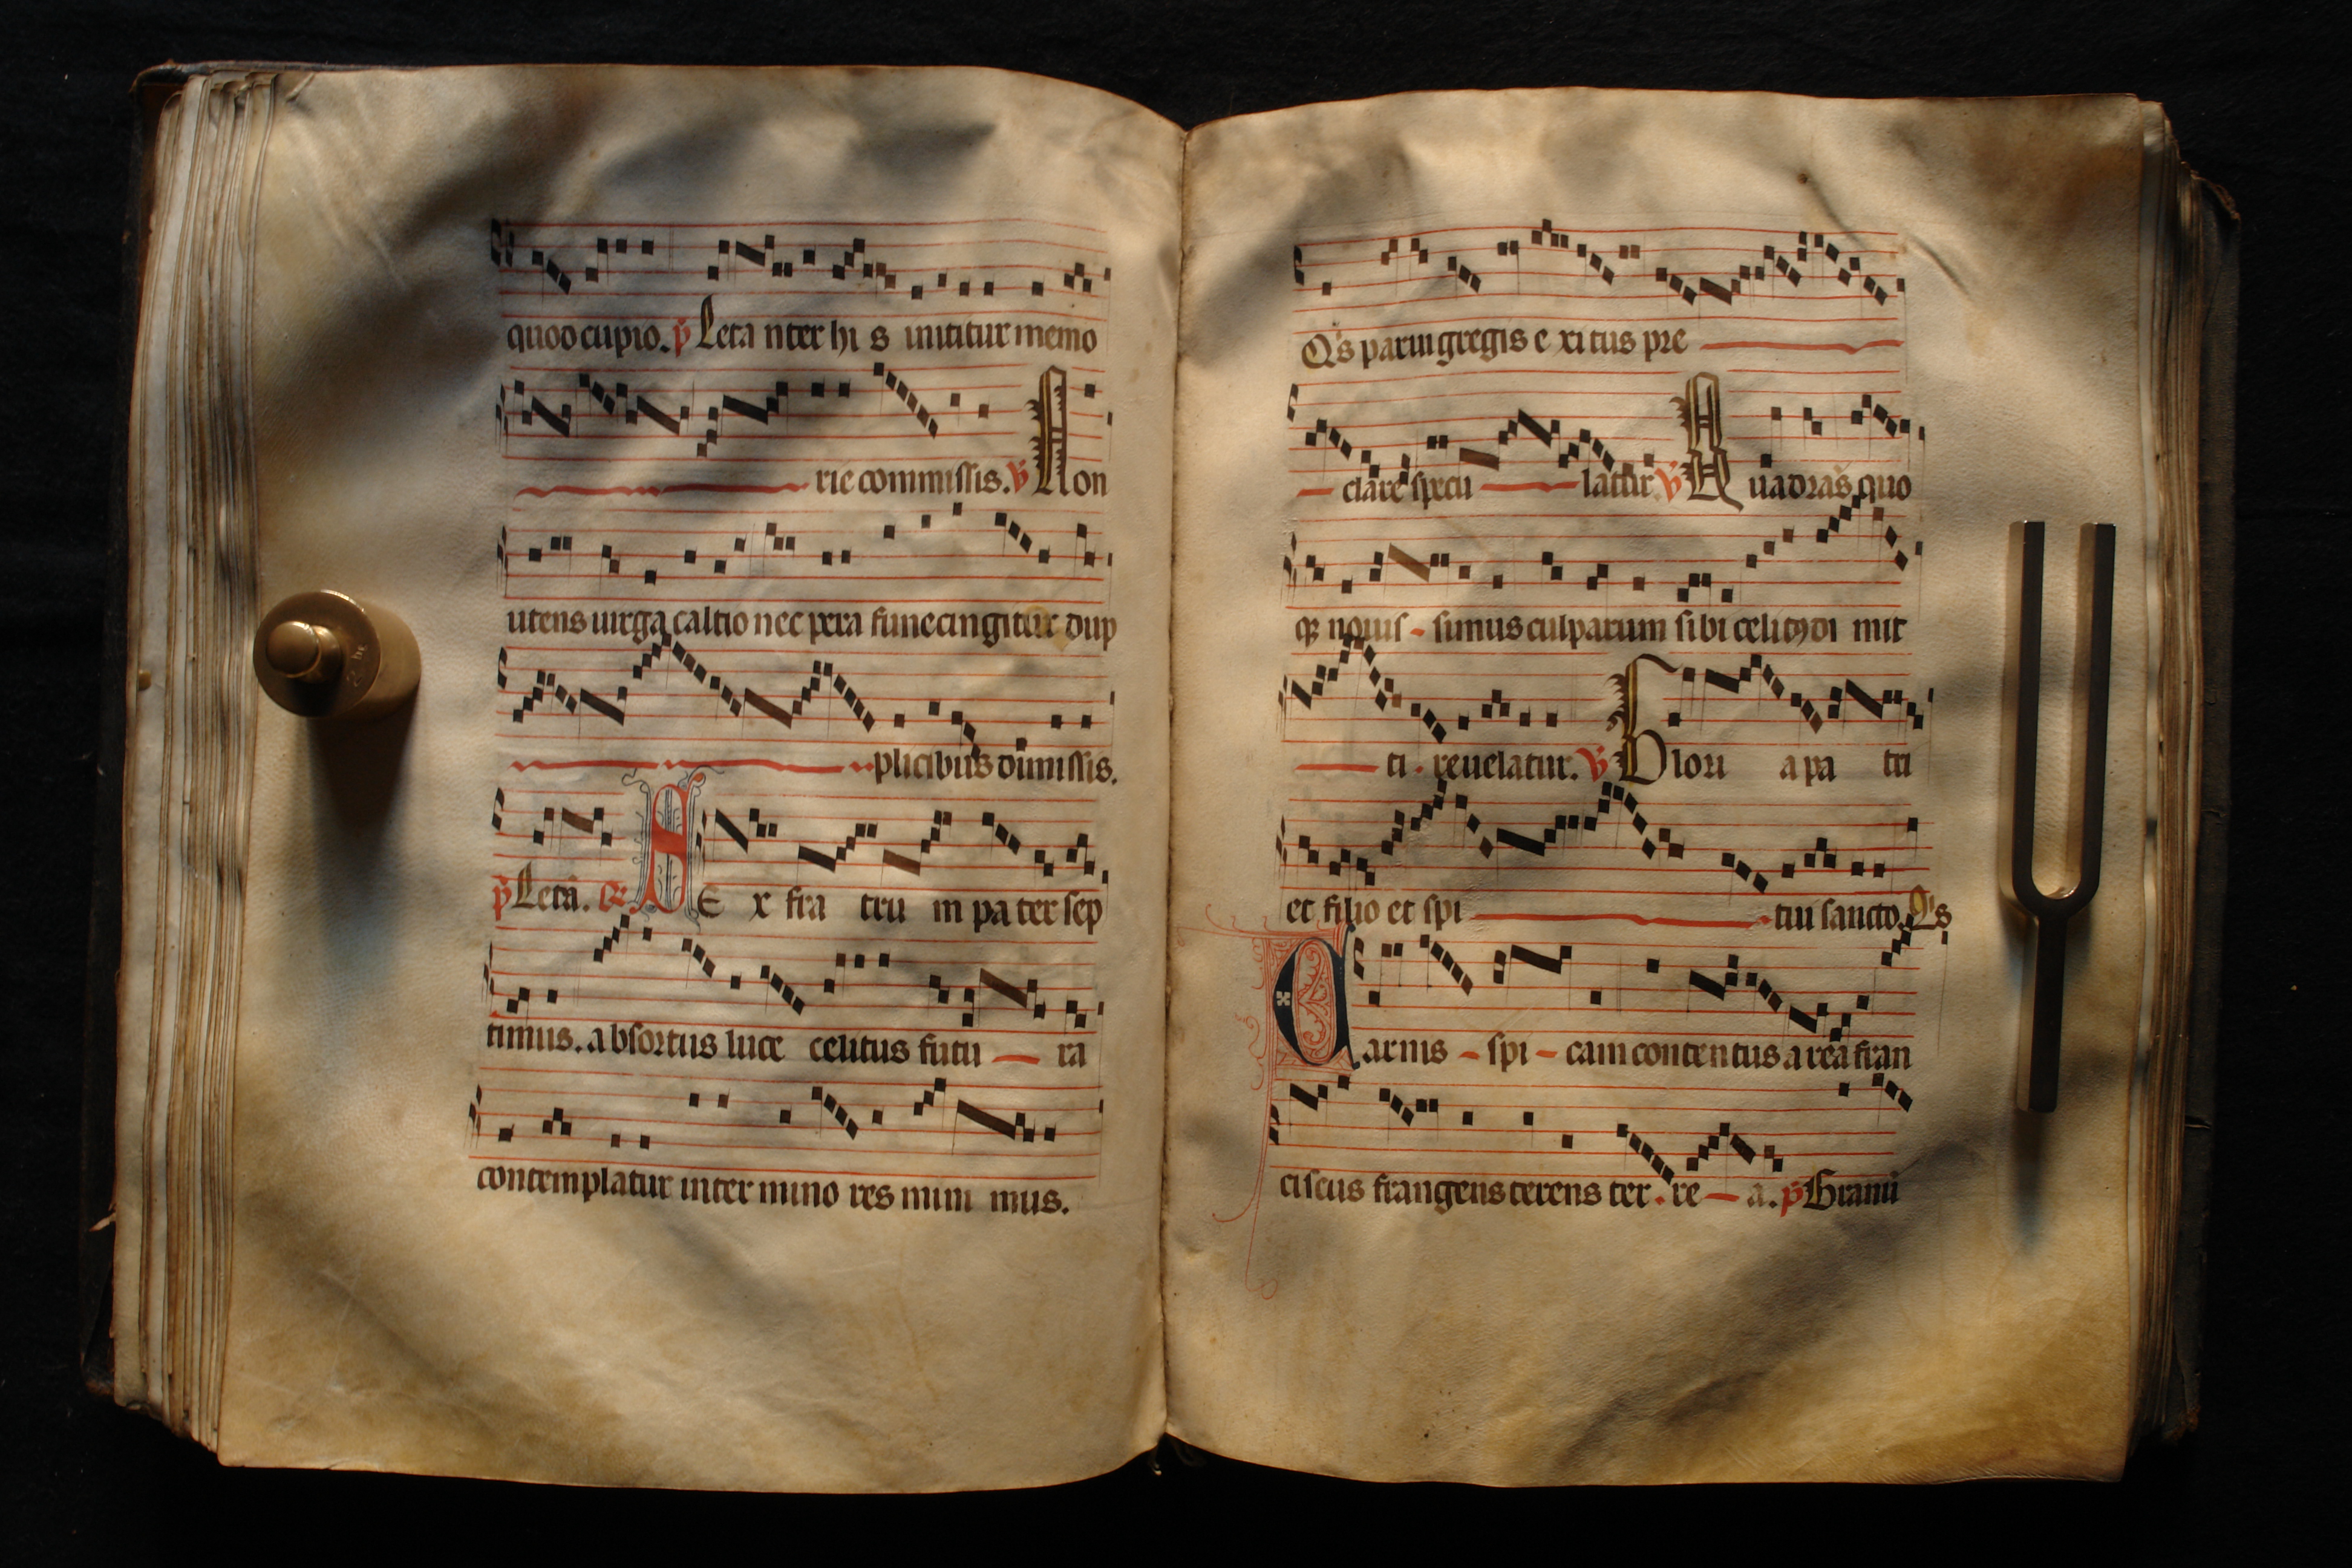 quod cupio. p̃ Leta nter hi s innititur memo
rie commissis. v̄ Non
utens uirga caltio nec pera fune cingitur dup
plicibus dimissis.
p̃ Letã. R. S E x fra tru m pa ter sep
timus. absortus luce celitus futu ra
contemplatur inter mino res mini mus.
Q's parui gregis e xi tus pre
clare specu latur v̄ Quadras quo
q; nouis - simus culparum sibi celitꝰ di mit
ti . reuelatur. v̄ Glori a pa tri
et filio et spi tui sancto. Q's
Carnis - spi - cam contentus area fran
ciscus frangens terens ter . re a. p̃ Granũ
2 hg